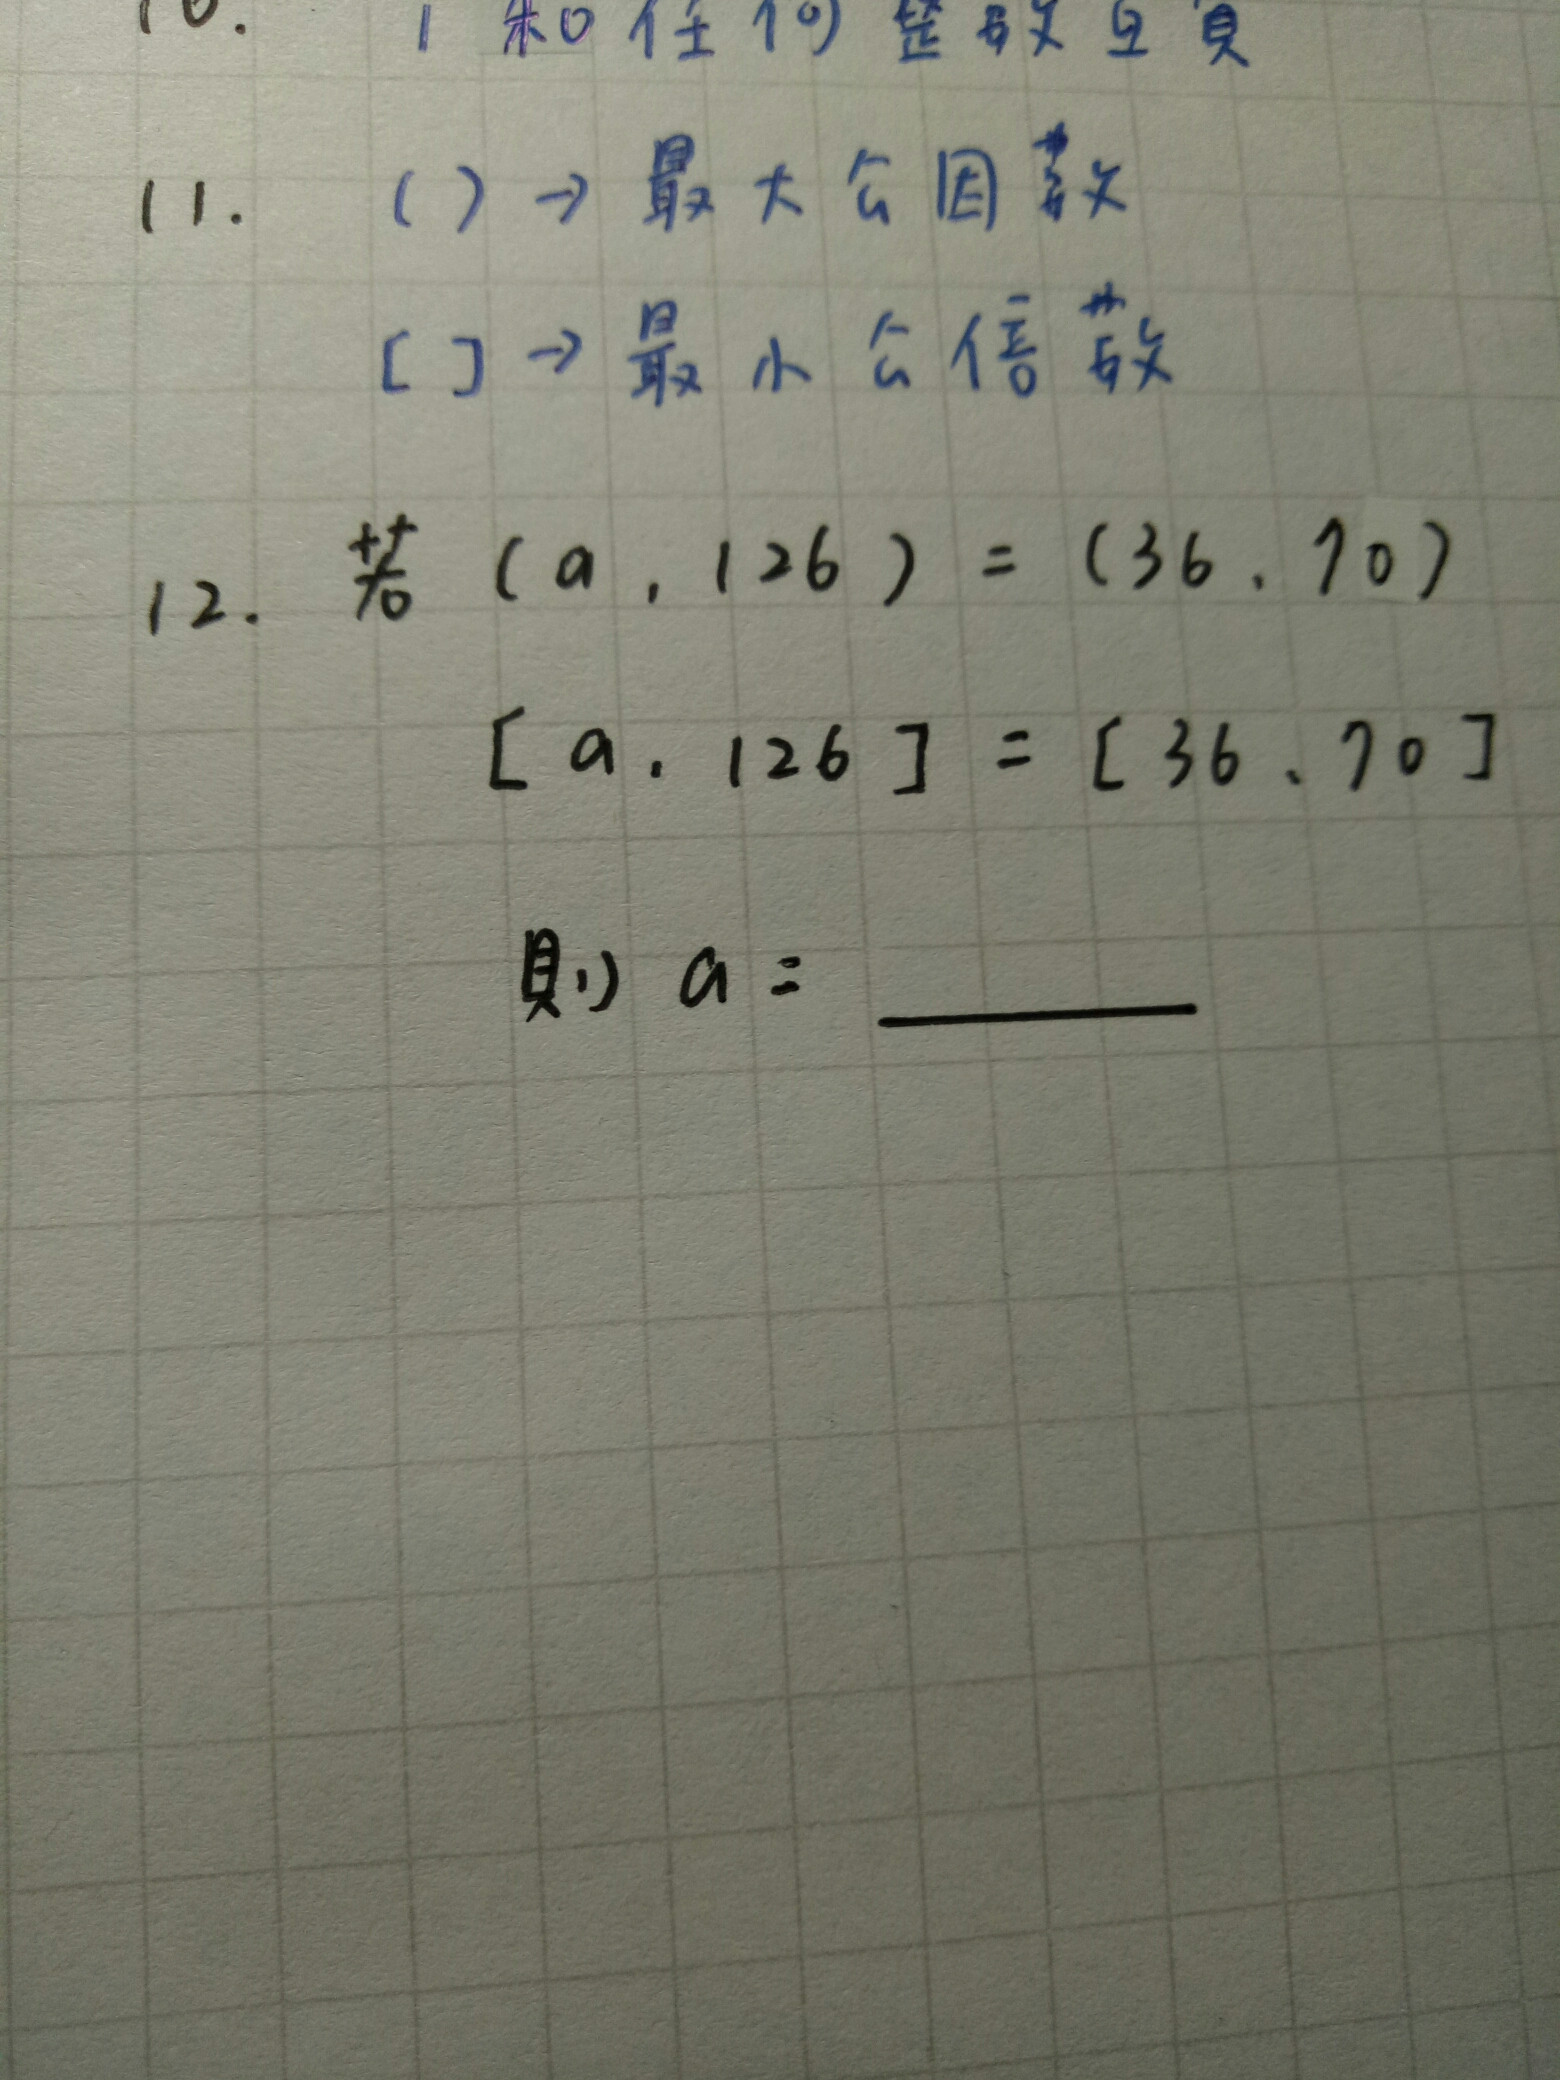 10. 1 和任何整數互質
11. ( ) → 最大公因數
[ ] → 最小公倍數
12. 若 (a, 126) = (36、70)
[a. 126] = [36、70]
則 a = ______